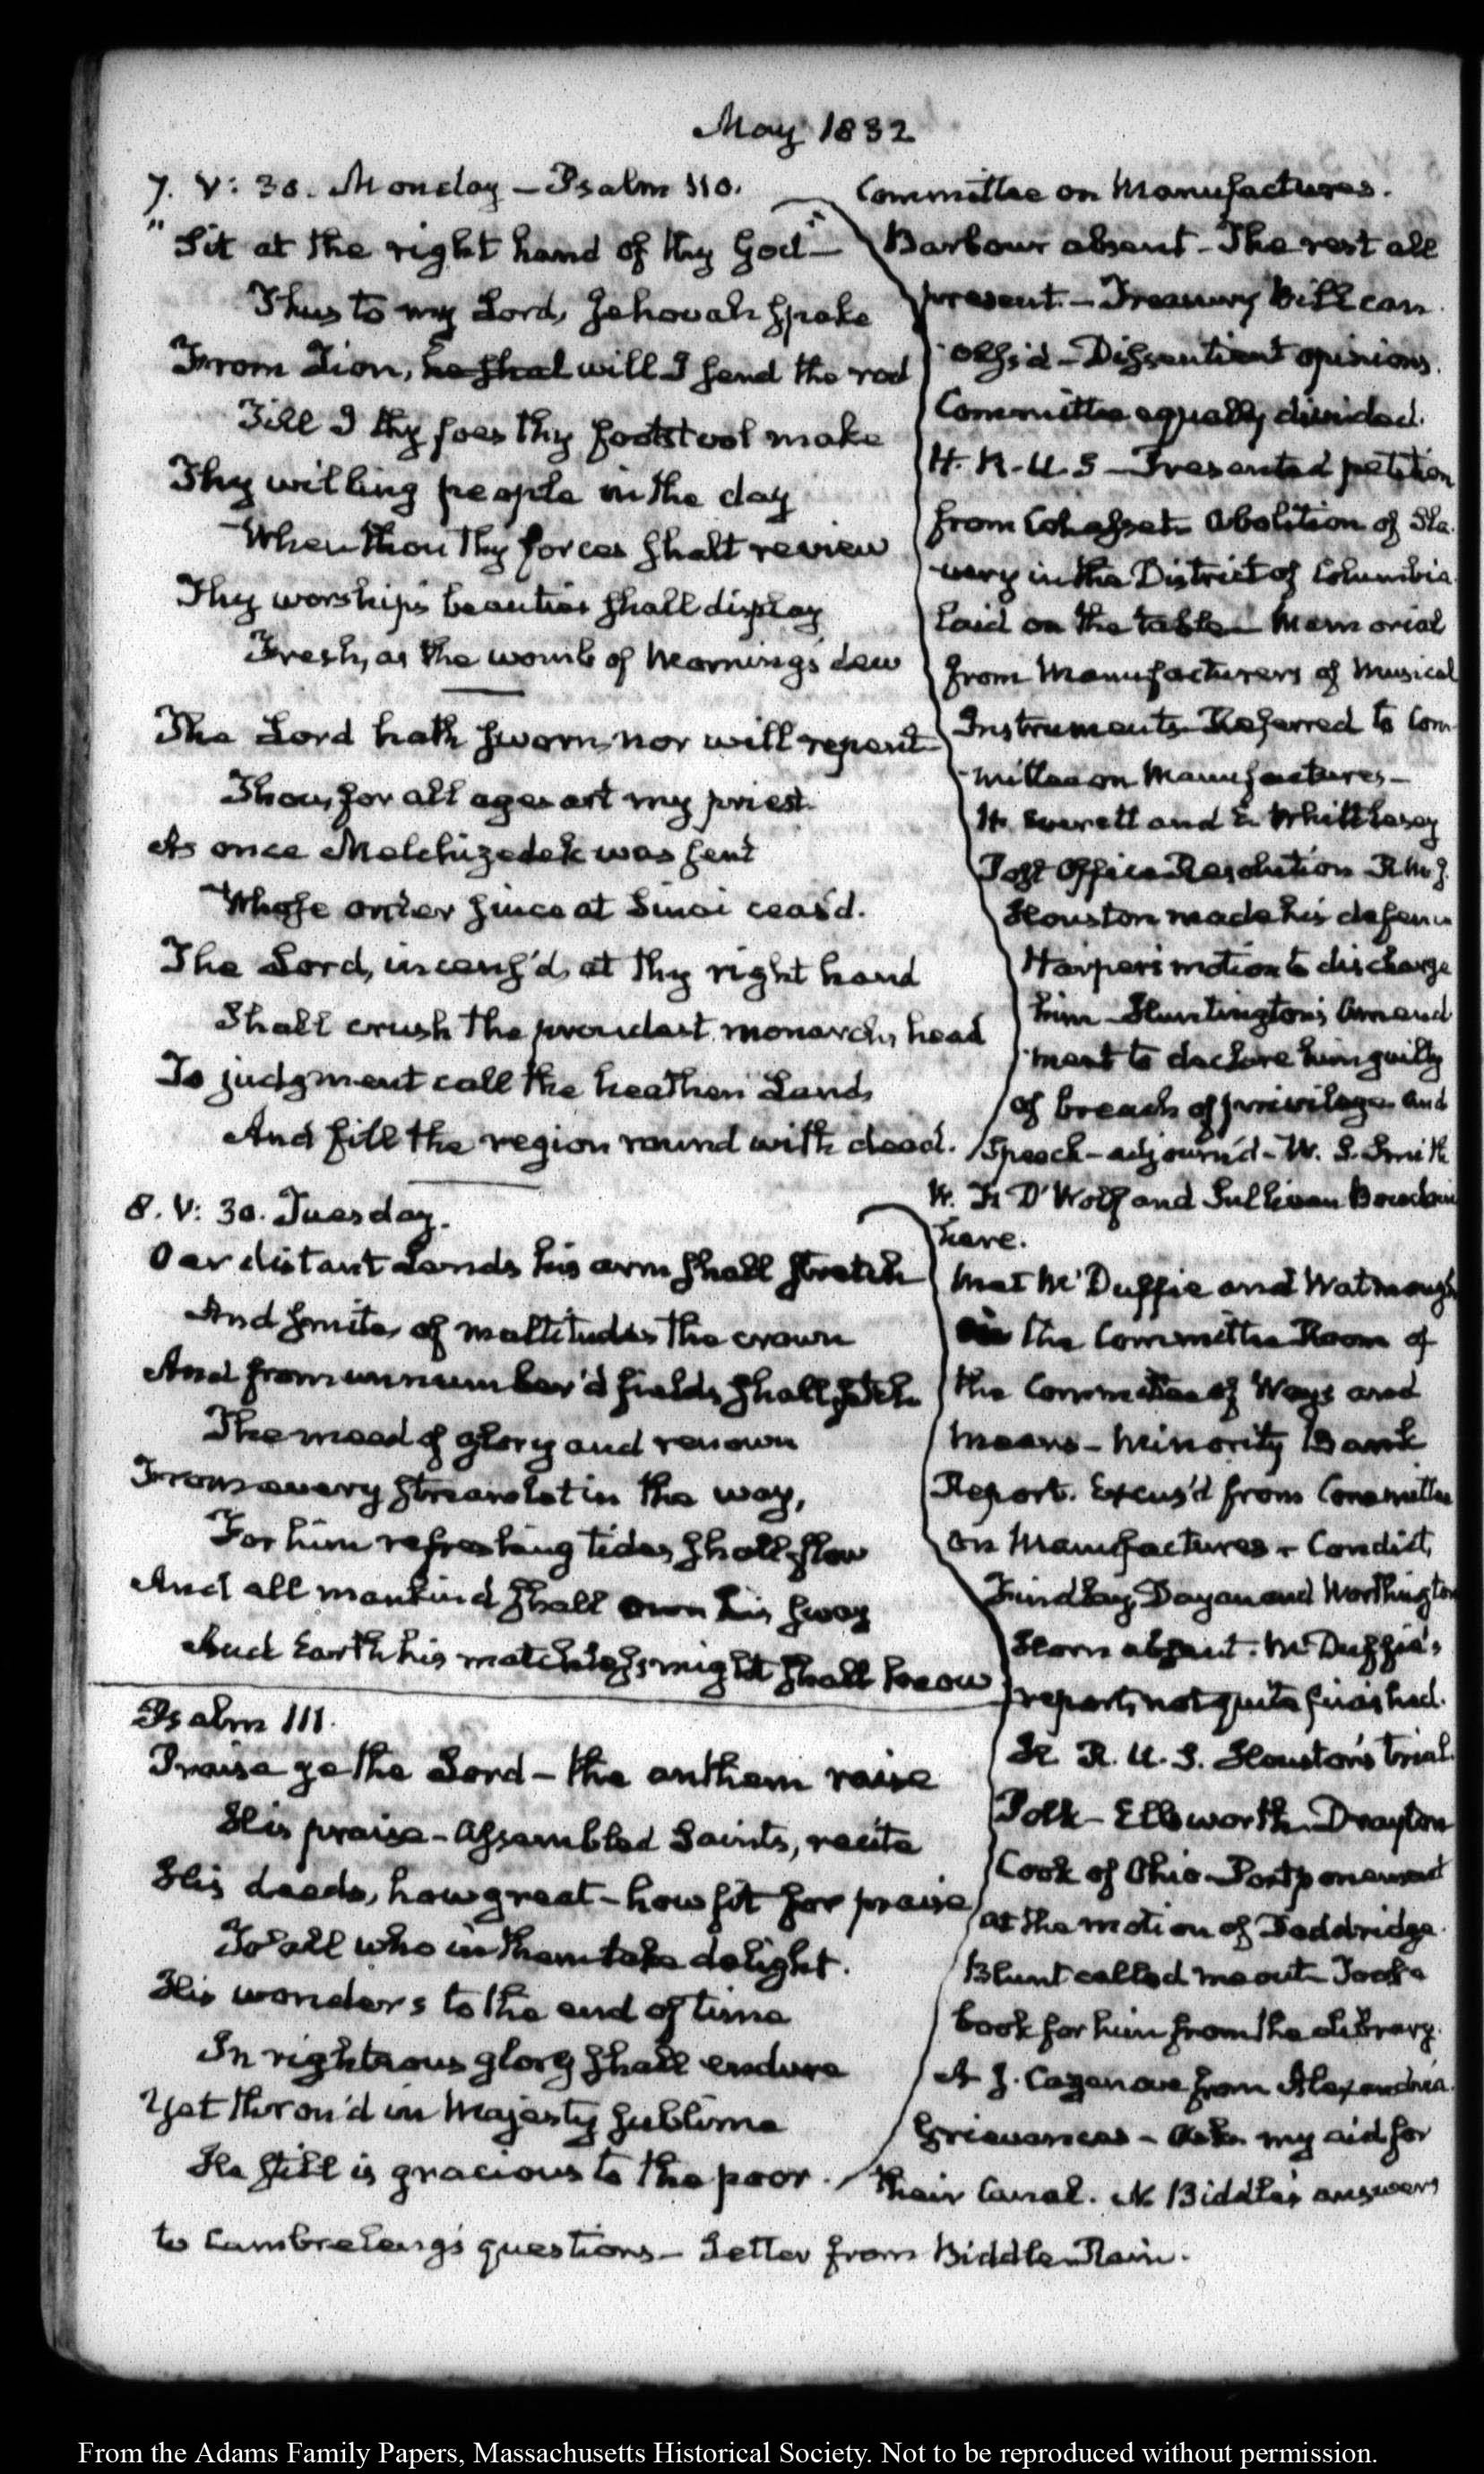 May 1832
7. V: 30. Monday — Psalm 110.
"Sit at the right hand of thy God"—
Thus to my Lord, Jehovah spake
From Zion, he shal will I send the rod
Till I thy foes thy footstool make
Thy willing people in the day
When thou thy forces shalt review
Thy worship's beauties shall display
Fresh, as the womb of Morning's dew
The Lord hath sworn, nor will repent
Thou, for all ages art my priest.
As once Melchizedek was sent
Whose order since at Sinai ceas'd.
The Lord, incens'd, at thy right hand
Shall crush the proudest monarch's head
To judgment call the heathen Lands
And fill the region round with dead.
Committee on Manufactures.
Barbour absent — The rest all
present. — Treasury Bill can
vass'd — Dissentient opinions.
Committee equally divided.
H. R. U. S — Presented petition
from Cohasset. Abolition of Sla
very in the District of Columbia
laid on the table — Memorial
from Manufacturers of Musical
Instruments. Referred to Com
mittee on Manufactures —
H. Everett and E. Whittlesey
Post Office Resolution
Houston made his defence
Harper's motion to discharge
him — Huntington's Amend
ment to declare him guilty
of breach of privilege and
Speech — adjourn'd — W. S. Smith
W. F. D'Wolf and Sullivan
here.
8. V: 30. Tuesday.
Oer distant Lands his arm shall stretch
And smite, of multitudes the crown
And from unnumber'd fields shall fetch
The meed of glory and renown
From every streamlet in the way,
For him refreshing tides shall flow
And all mankind shall own his sway
And Earth his matchless might shall know
Psalm 111.
Praise ye the Lord — the anthem raise
His praise — Assembled Saints, recite
His deeds, how great — how fit for praise
To all who in them take delight.
His wonders to the end of time
In righteous glory shall endure
Yet thron'd in Majesty sublime
He still is gracious to the poor.
Met McDuffie and Watmough
in the Committee Room of
the Committee of Ways and
Means — Minority Bank
Report. Excus'd from Committee
on Manufactures — Condict,
Findlay, Dayan and Worthington
Horn absent. McDuffie's
report, not quite finished.
H. R. U. S. Houston's trial.
Polk — Ellsworth. Drayton
Cook of Ohio — Postponement
at the motion of Doddridge.
Blunt called me out — Took a
book for him from the Library.
A J. Cazenove from Alexandria.
Grievances — Asks my aid for
their Canal. N. Biddle's answers
to Cambreleng's questions — Letter from Biddle — Rain.
From the Adams Family Papers, Massachusetts Historical Society. Not to be reproduced without permission.